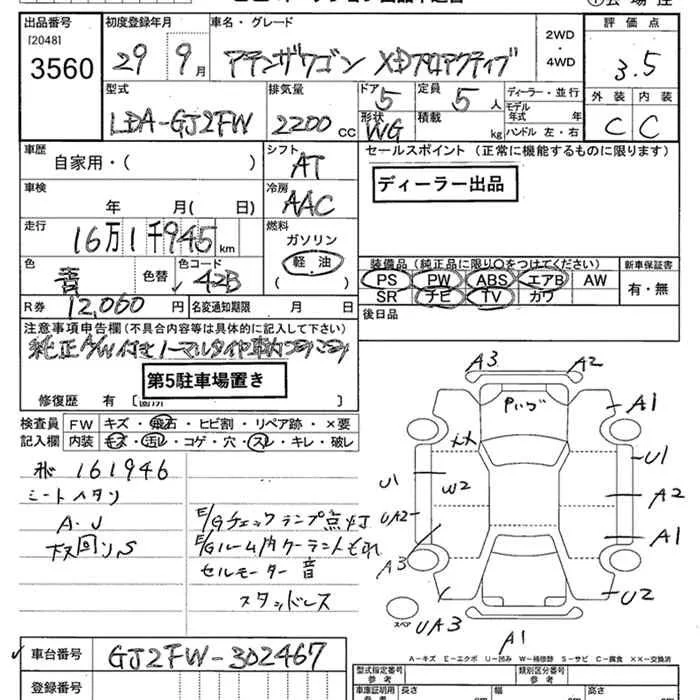 出品番号 初度登録年月 車名・グレード 2WD・4WD 評価点
[2048]
3560 29 9月 アテンザワゴン XDプロアクティブ 3.5
型式 排気量 ドア 定員 ディーラー・並行 外装 内装
LDA-GJ2FW 2200cc 5 5人 モデル年式 年
形状 WG 積載 kg ハンドル 左・右 C C
車歴 自家用・( ) シフト AT セールスポイント (正常に機能するものに限ります)
ディーラー出品
車検 年 月( 日) 冷房 AAC
走行 16万1千945km 燃料 ガソリン
軽油
( )
色 色替 色コード 42B
装備品 (純正品に限り○をつけてください) 新車保証書
PS PW ABS エアB AW 有・無
SR ナビ TV カワ
R券 12,060円 名変通知期限 月 日 後日品
注意事項申告欄 (不具合内容等は具体的に記入して下さい)
第5駐車場置き
修復歴 有 [箇所
検査員 FW キズ・飛石・ヒビ割・リペア跡・×要
記入欄 内装 キズ・汚レ・コゲ・穴・スレ・キレ・破レ
161946
A.U
下回リS
E/Gチェックランプ点灯
E/Gルーム内クーラントもれ
セルモーター音
スタッドレス
A3 A2
A1
U1
U1 W2 A2
UA2 A1
A3
U2
スペア UA3
A1
A-キズ E-エクボ U-凹み W-補修跡 S-サビ C-腐食 ××-交換済
車台番号 GJ2FW-302467
登録番号
型式指定番号 参考 類別区分番号 参考
車庫証明用 参考 長さ 幅 高さ